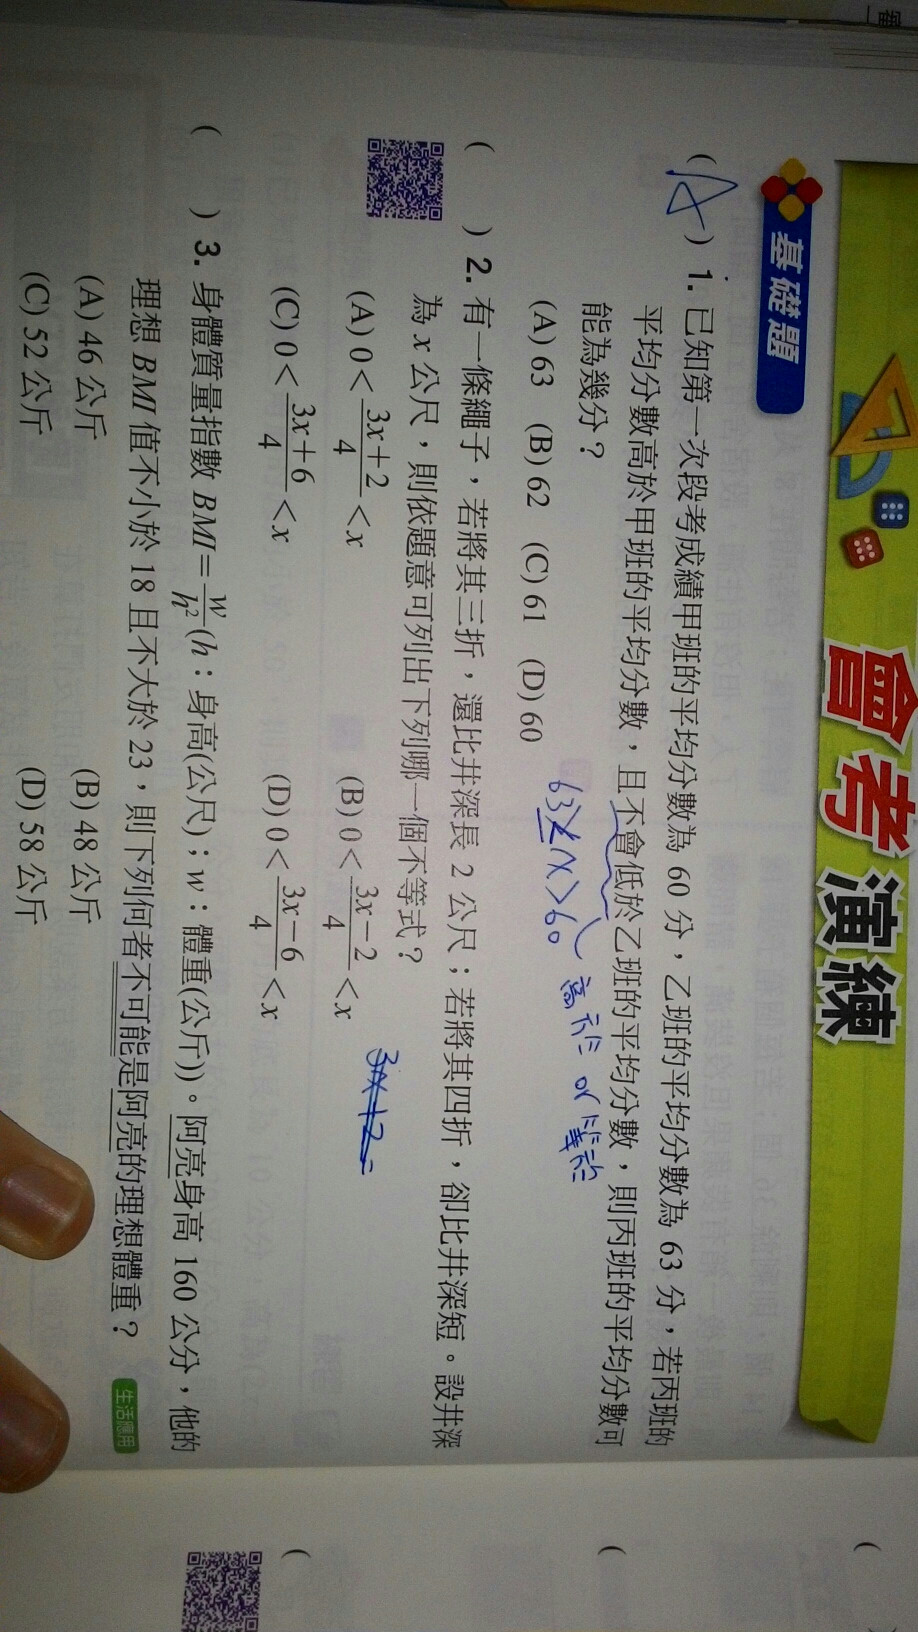 會考演練
基礎題
(A) 1. 已知第一次段考成績甲班的平均分數為 60 分，乙班的平均分數為 63 分，若丙班的
平均分數高於甲班的平均分數，且不會低於乙班的平均分數，則丙班的平均分數可
能為幾分？
高於 or 等於
(A) 63 (B) 62 (C) 61 (D) 60
63≤x>60
( ) 2. 有一條繩子，若將其三折，還比井深長 2 公尺；若將其四折，卻比井深短。設井深
為 x 公尺，則依題意可列出下列哪一個不等式？
(A) 0<\frac{3x+2}{4}<x (B) 0<\frac{3x-2}{4}<x
3x+2=
(C) 0<\frac{3x+6}{4}<x (D) 0<\frac{3x-6}{4}<x
( ) 3. 身體質量指數 BMI=\frac{w}{h²}(h：身高(公尺)；w：體重(公斤))。阿亮身高 160 公分，他的
理想 BMI 值不小於 18 且不大於 23，則下列何者不可能是阿亮的理想體重？ 生活應用
(A) 46 公斤 (B) 48 公斤
(C) 52 公斤 (D) 58 公斤